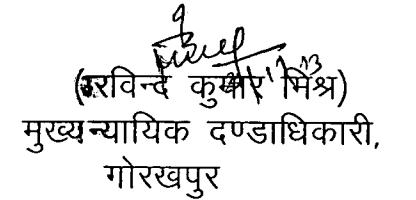 (रविन्द्र कुमार मिश्र)
मुख्य न्यायिक दण्डाधिकारी,
गोरखपुर